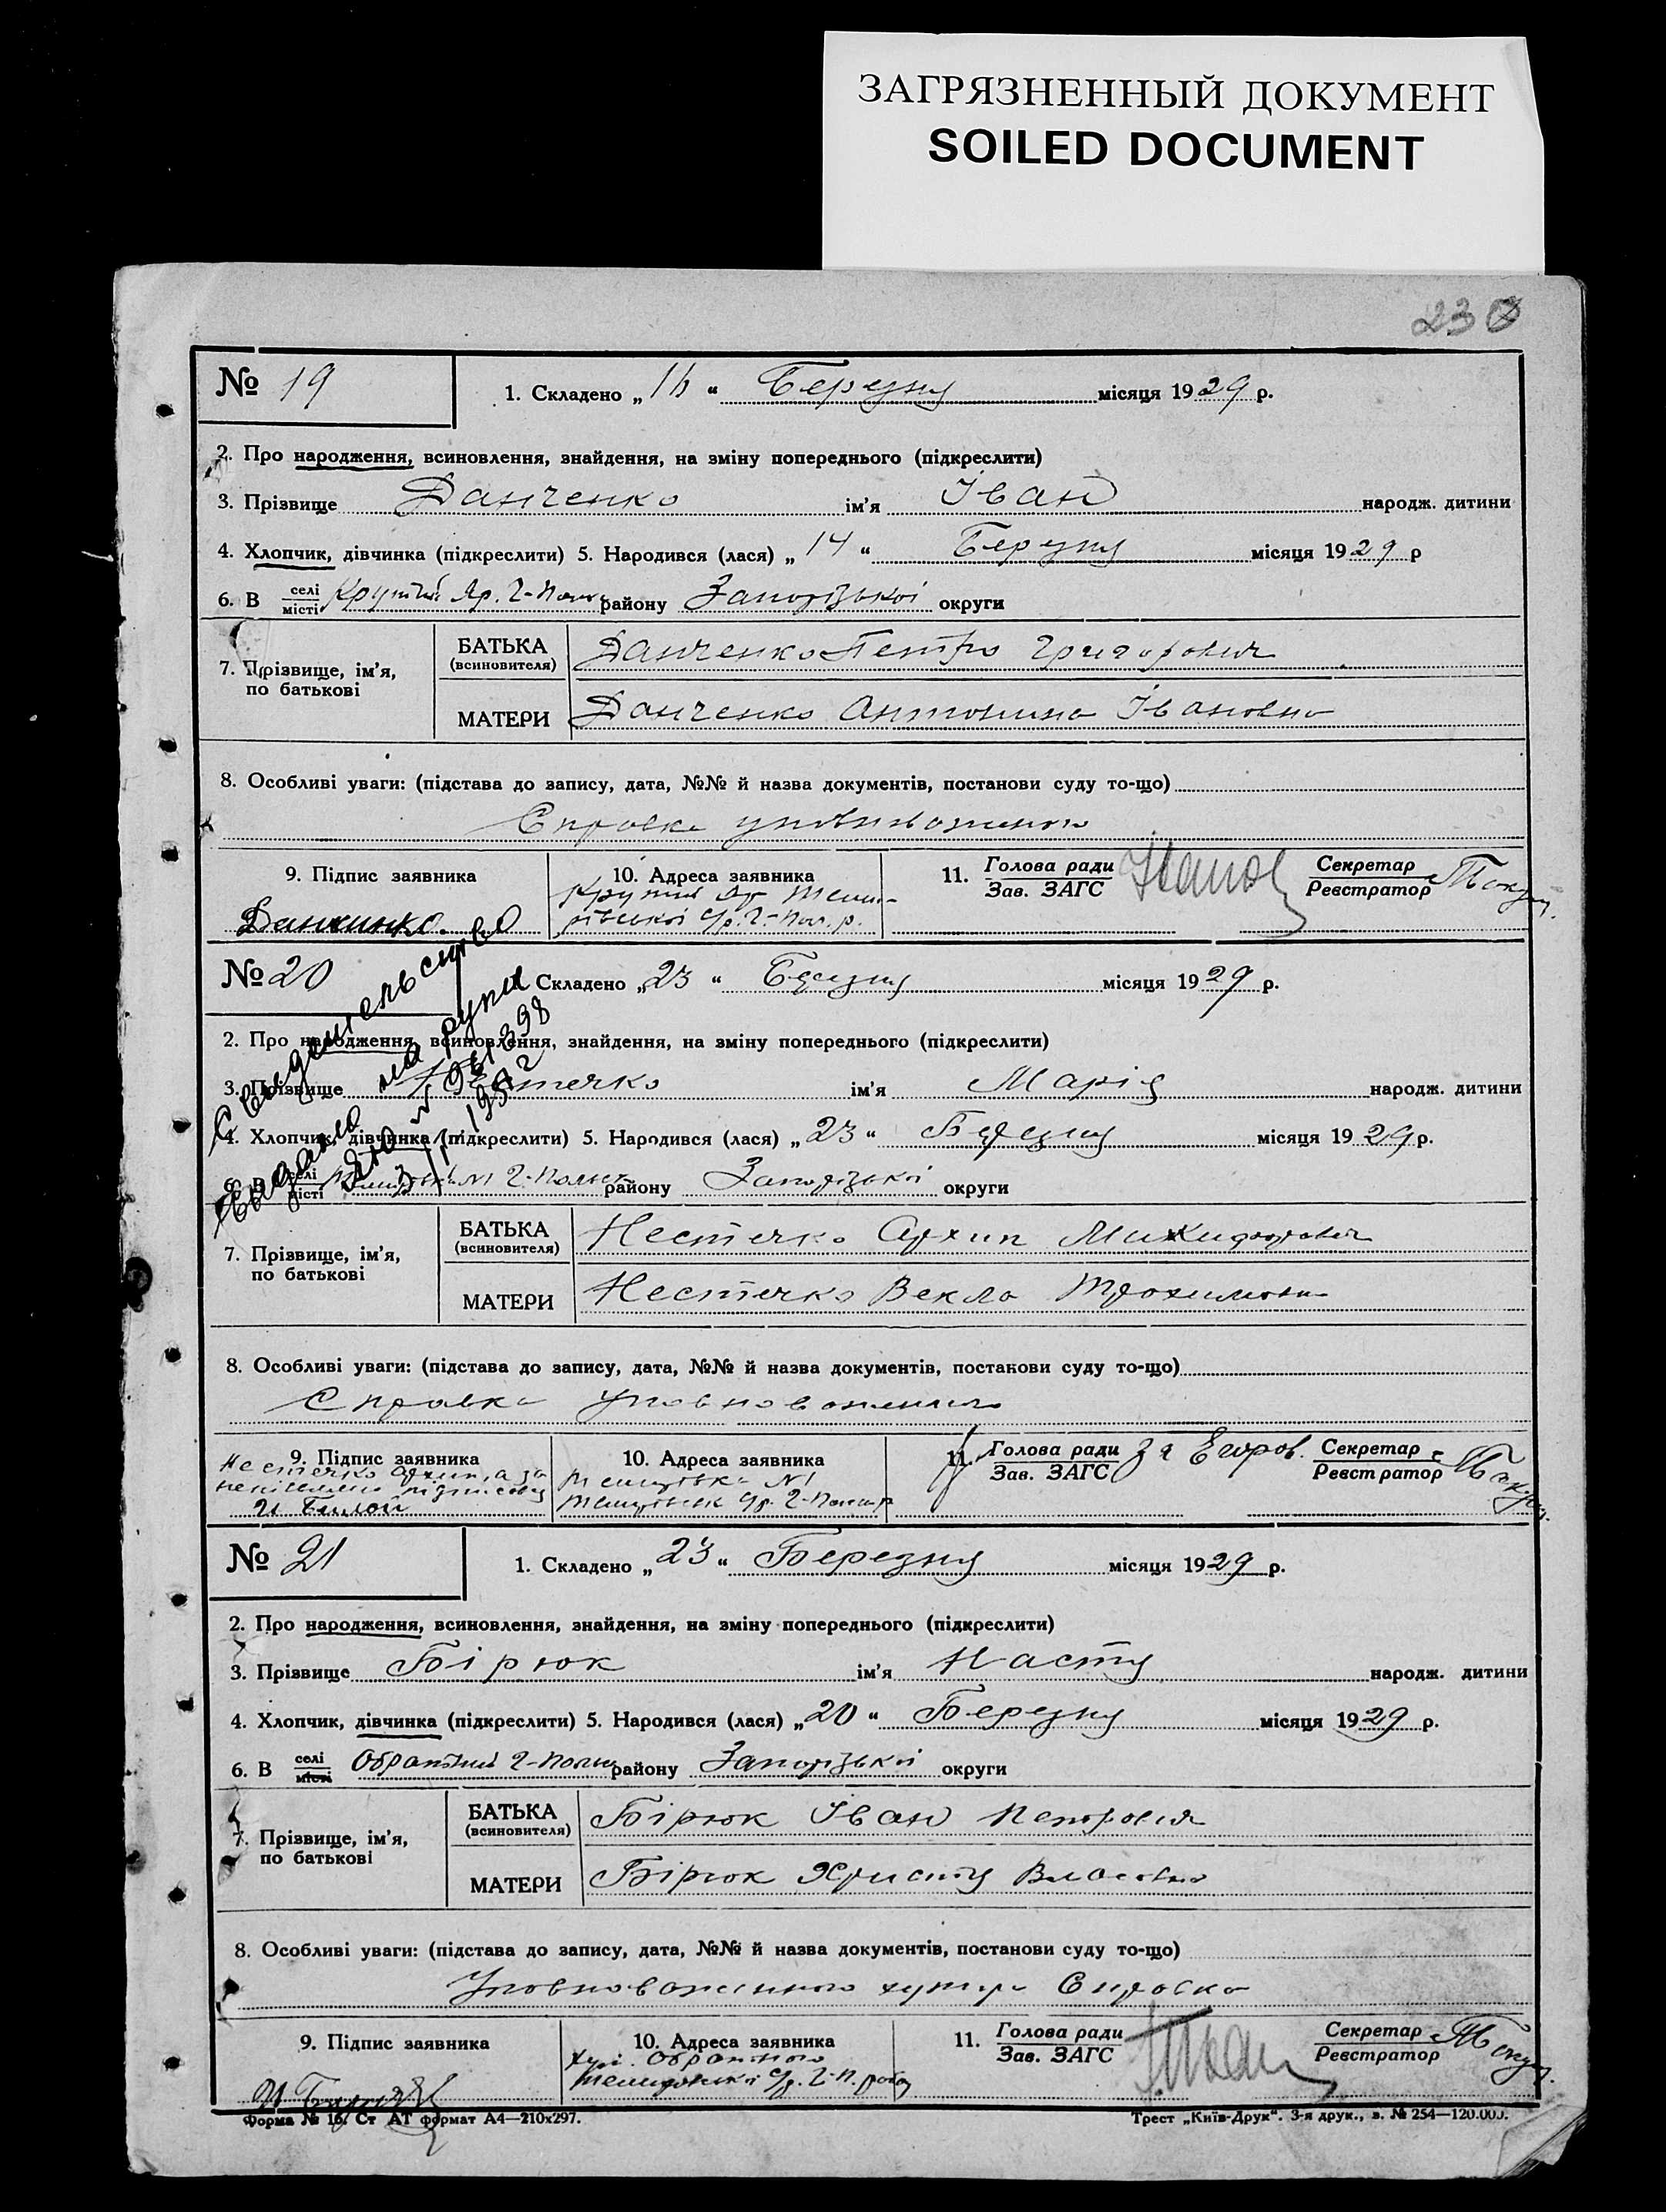 ЗАГРЯЗНЕННЫЙ ДОКУМЕНТ
SOILED DOCUMENT
230
№ 19
1. Складено „ 16 “ Березня місяця 1929 р.
2. Про народження, всиновлення, знайдення, на зміну попереднього (підкреслити)
3. Прізвище Данченко ім'я Іван народж. дитини
4. Хлопчик, дівчинка (підкреслити) 5. Народився (лася) „ 14 “ Березня місяця 1929 р
6. В селі місті Крутий Яр. Г-Поль району Запорізької округи
7. Прізвище, ім'я, по батькові
БАТЬКА (всиновителя) Данченко Петро Григорович
МАТЕРИ Данченко Антонина Івановна
8. Особливі уваги: (підстава до запису, дата, №№ й назва документів, постанови суду то-що)
Справка уповноваженого
9. Підпис заявника
Данчинко
10. Адреса заявника
Крутий Яр
с/р. Г-Пол. р.
11. Голова ради Зав. ЗАГС
Секретар Реєстратор
№ 20
Складено „ 23 “ Березня місяця 1929 р.
Свидетельство
выдано на руки
2. Про народження, всиновлення, знайдення, на зміну попереднього (підкреслити)
3. Прізвище Нестечко ім'я Марія народж. дитини
4. Хлопчик, дівчинка (підкреслити) 5. Народився (лася) „ 23 “ Березня місяця 1929 р.
6. В селі місті №1 Г-Польск району Запорізької округи
7. Прізвище, ім'я, по батькові
БАТЬКА (всиновителя) Нестечко Архип
МАТЕРИ Нестечко Векла Трохимовна
8. Особливі уваги: (підстава до запису, дата, №№ й назва документів, постанови суду то-що)
Справка Уповноваженого
9. Підпис заявника
Нестечко Архип, а за
И Билой
10. Адреса заявника
№1
с/р. Г-Поль р
11. Голова ради Зав. ЗАГС за Егоров.
Секретар Реєстратор
№ 21
1. Складено „ 23 “ Березня місяця 1929 р.
2. Про народження, всиновлення, знайдення, на зміну попереднього (підкреслити)
3. Прізвище Бірюк ім'я Настя народж. дитини
4. Хлопчик, дівчинка (підкреслити) 5. Народився (лася) „ 20 “ Березня місяця 1929 р.
6. В селі місті Обратний Г-Поль району Запорізької округи
7. Прізвище, ім'я, по батькові
БАТЬКА (всиновителя) Бірюк Іван Петрович
МАТЕРИ Бірюк Христя Власовна
8. Особливі уваги: (підстава до запису, дата, №№ й назва документів, постанови суду то-що)
Уповноваженного хутора Справка
9. Підпис заявника
10. Адреса заявника
хут. Обратного
с/р. Г-П. району
11. Голова ради Зав. ЗАГС
Секретар Реєстратор
Форма № 16. Ст АТ формат А4—210х297.
Трест „Київ-Друк“. 3-я друк., з. № 254—120.000.